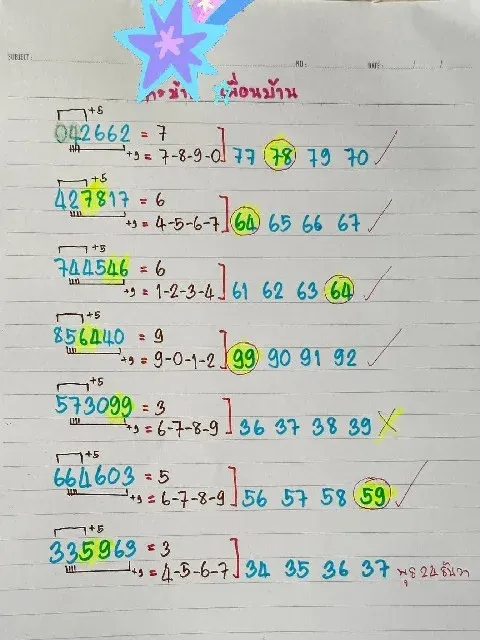 SUBJECT: NO: DATE: / /
เพื่อนบ้าน
+5
042662 = 7
+9 = 7-8-9-0 77 78 79 70 ✓
+5
427817 = 6
+9 = 4-5-6-7 64 65 66 67 ✓
+5
744546 = 6
+9 = 1-2-3-4 61 62 63 64 ✓
+5
856440 = 9
+9 = 9-0-1-2 99 90 91 92 ✓
+5
573099 = 3
+9 = 6-7-8-9 36 37 38 39 X
+5
664603 = 5
+9 = 6-7-8-9 56 57 58 59 ✓
+5
335963 = 3
+9 = 4-5-6-7 34 35 36 37 พุธ 24 ธันวา